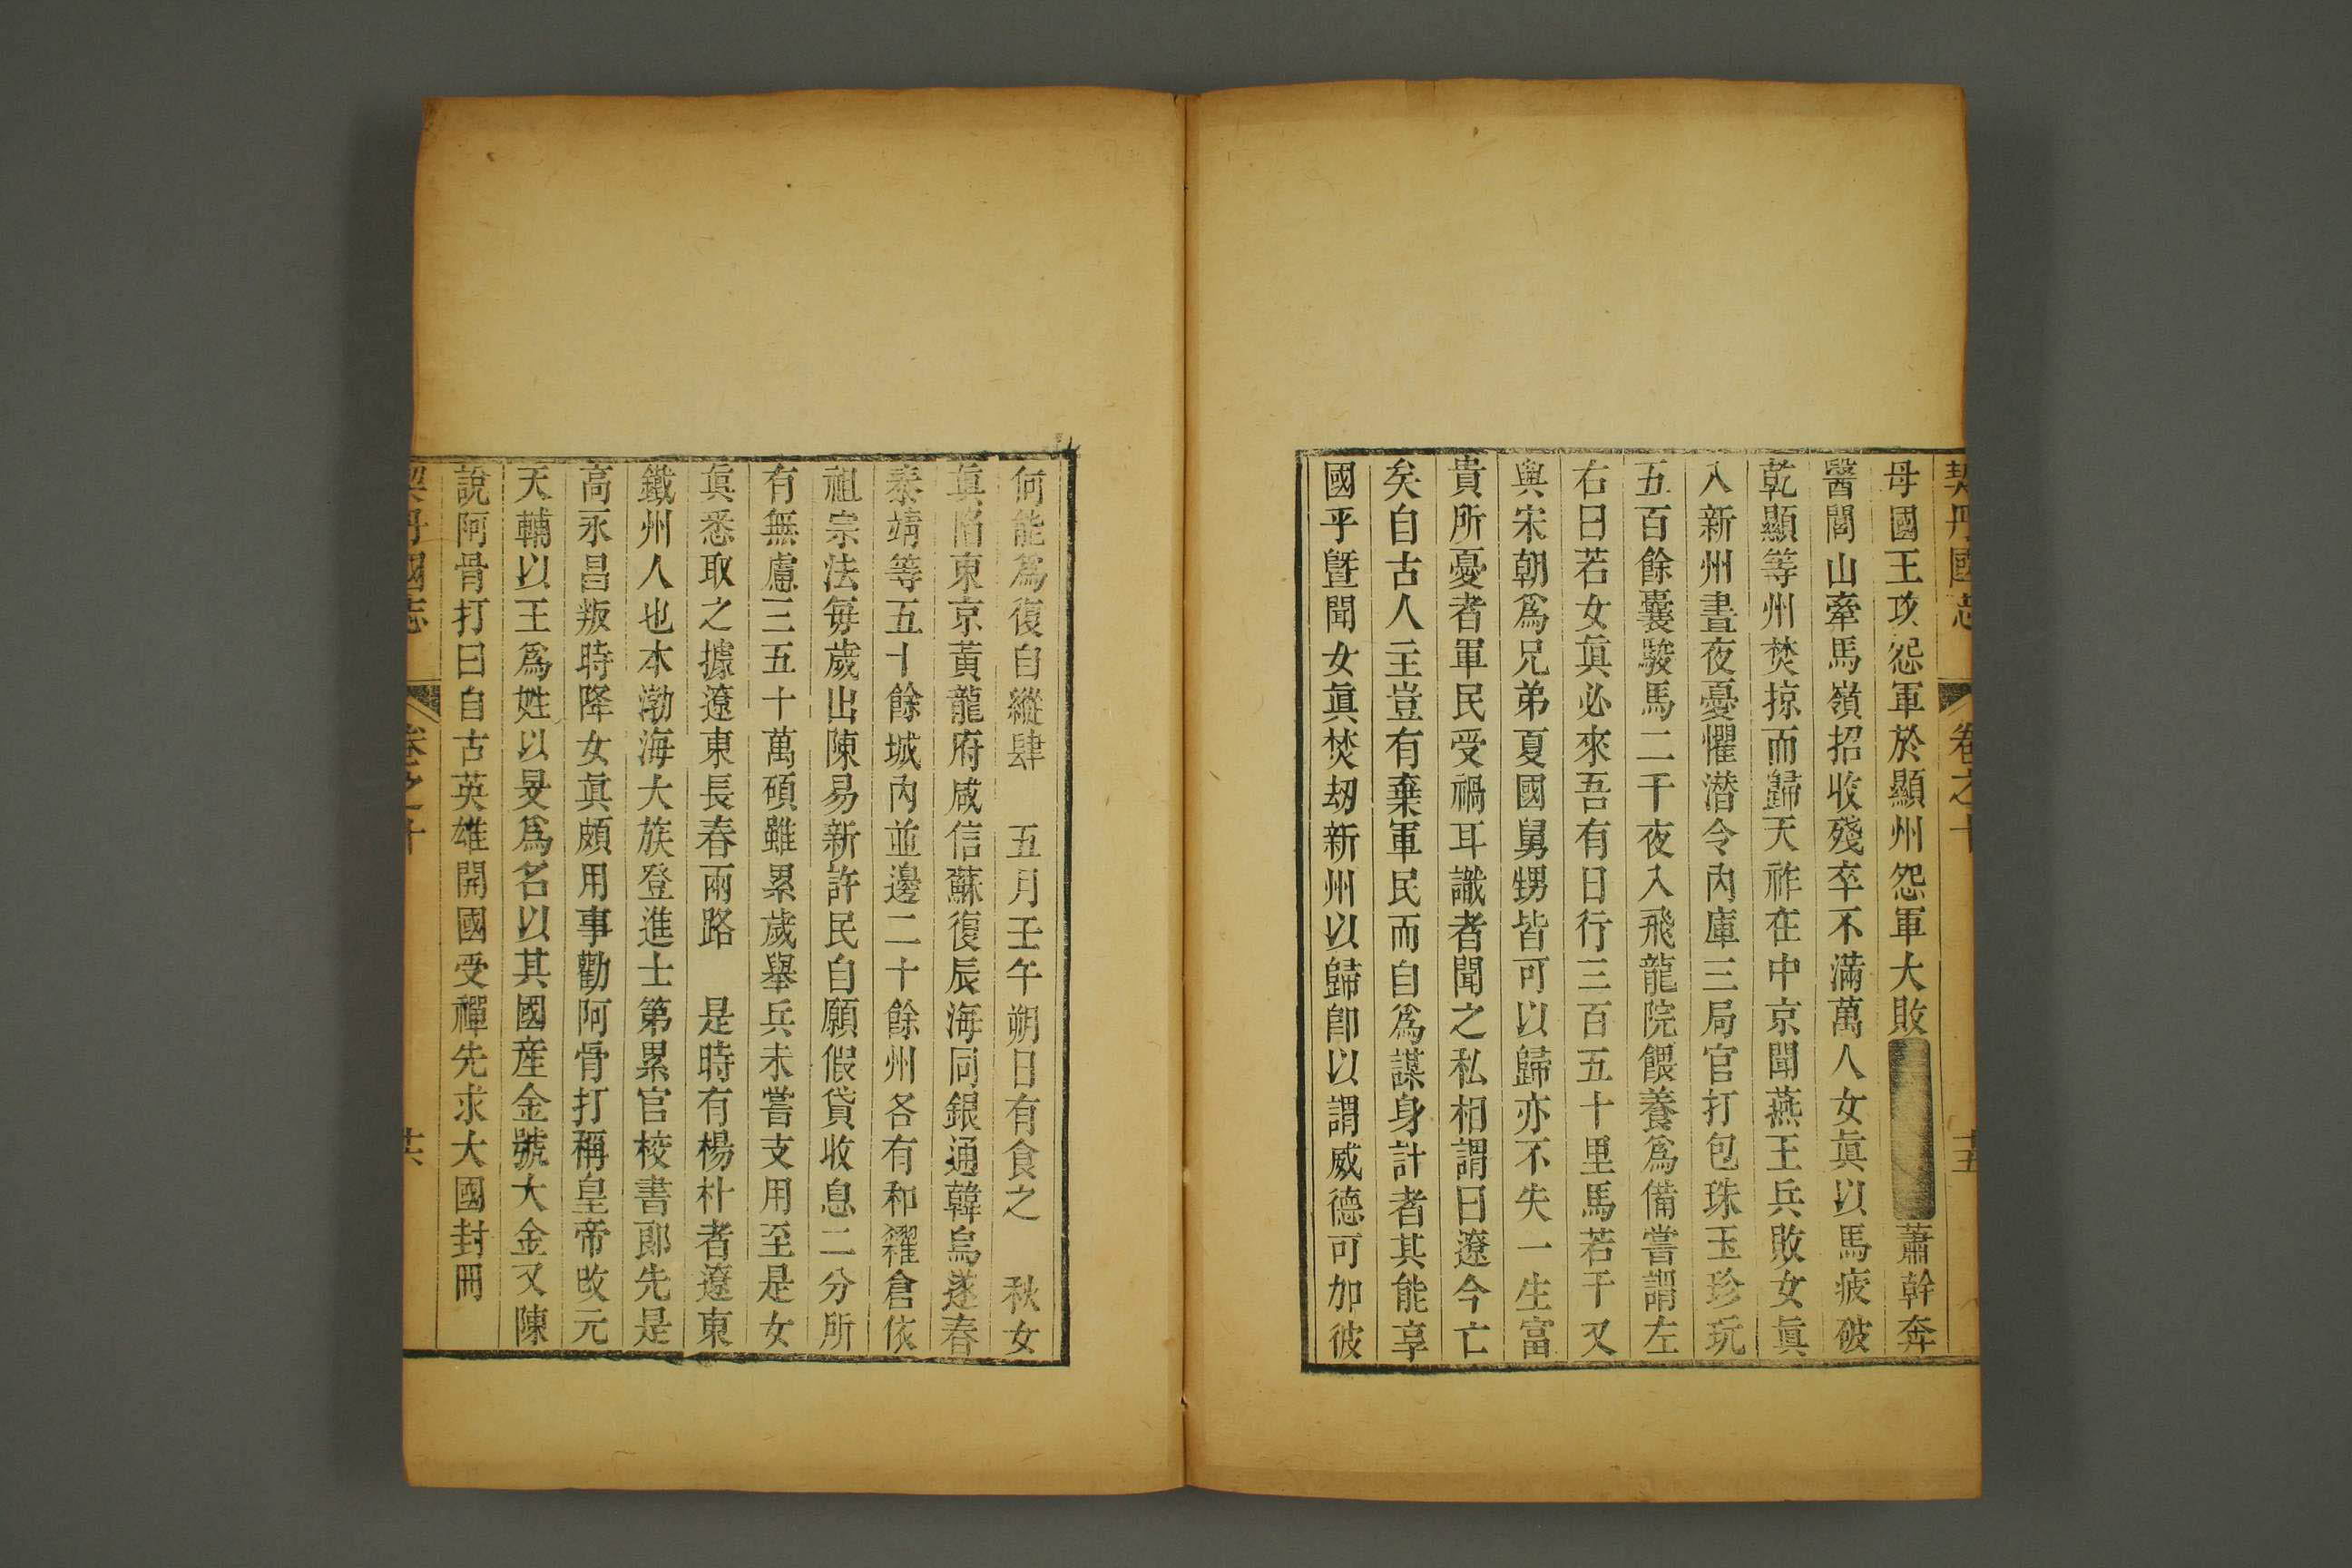 契丹國志 卷之十 十五
母國王攻怨軍於顯州怨軍大敗 蕭幹奔
醫閭山牽馬嶺招收殘卒不滿萬人女眞以馬疲破
乾顯等州焚掠而歸天祚在中京聞燕王兵敗女眞
入新州晝夜憂懼潛令內庫三局官打包珠玉珍玩
五百餘囊駿馬二千夜入飛龍院餵養爲備嘗謂左
右曰若女眞必來吾有日行三百五十里馬若干又
與宋朝爲兄弟夏國舅甥皆可以歸亦不失一生富
貴所憂者軍民受禍耳識者聞之私相謂曰遼今亡
矣自古人主豈有棄軍民而自爲謀身計者其能享
國乎曁聞女眞焚刼新州以歸卽以謂威德可加彼
何能爲復自縱肆 五月壬午朔日有食之 秋女
眞陷東京黃龍府咸信蘇復辰海同銀通韓烏遂春
泰靖等五十餘城內並邊二十餘州各有和糴倉依
祖宗法每歲出陳易新許民自願假貸收息二分所
有無慮三五十萬碩雖累歲舉兵未嘗支用至是女
眞悉取之據遼東長春兩路 是時有楊朴者遼東
鐵州人也本渤海大族登進士第累官校書郞先是
高永昌叛時降女眞頗用事勸阿骨打稱皇帝改元
天輔以王爲姓以旻爲名以其國產金號大金又陳
說阿骨打曰自古英雄開國受禪先求大國封冊
契丹國志 卷之十 十六